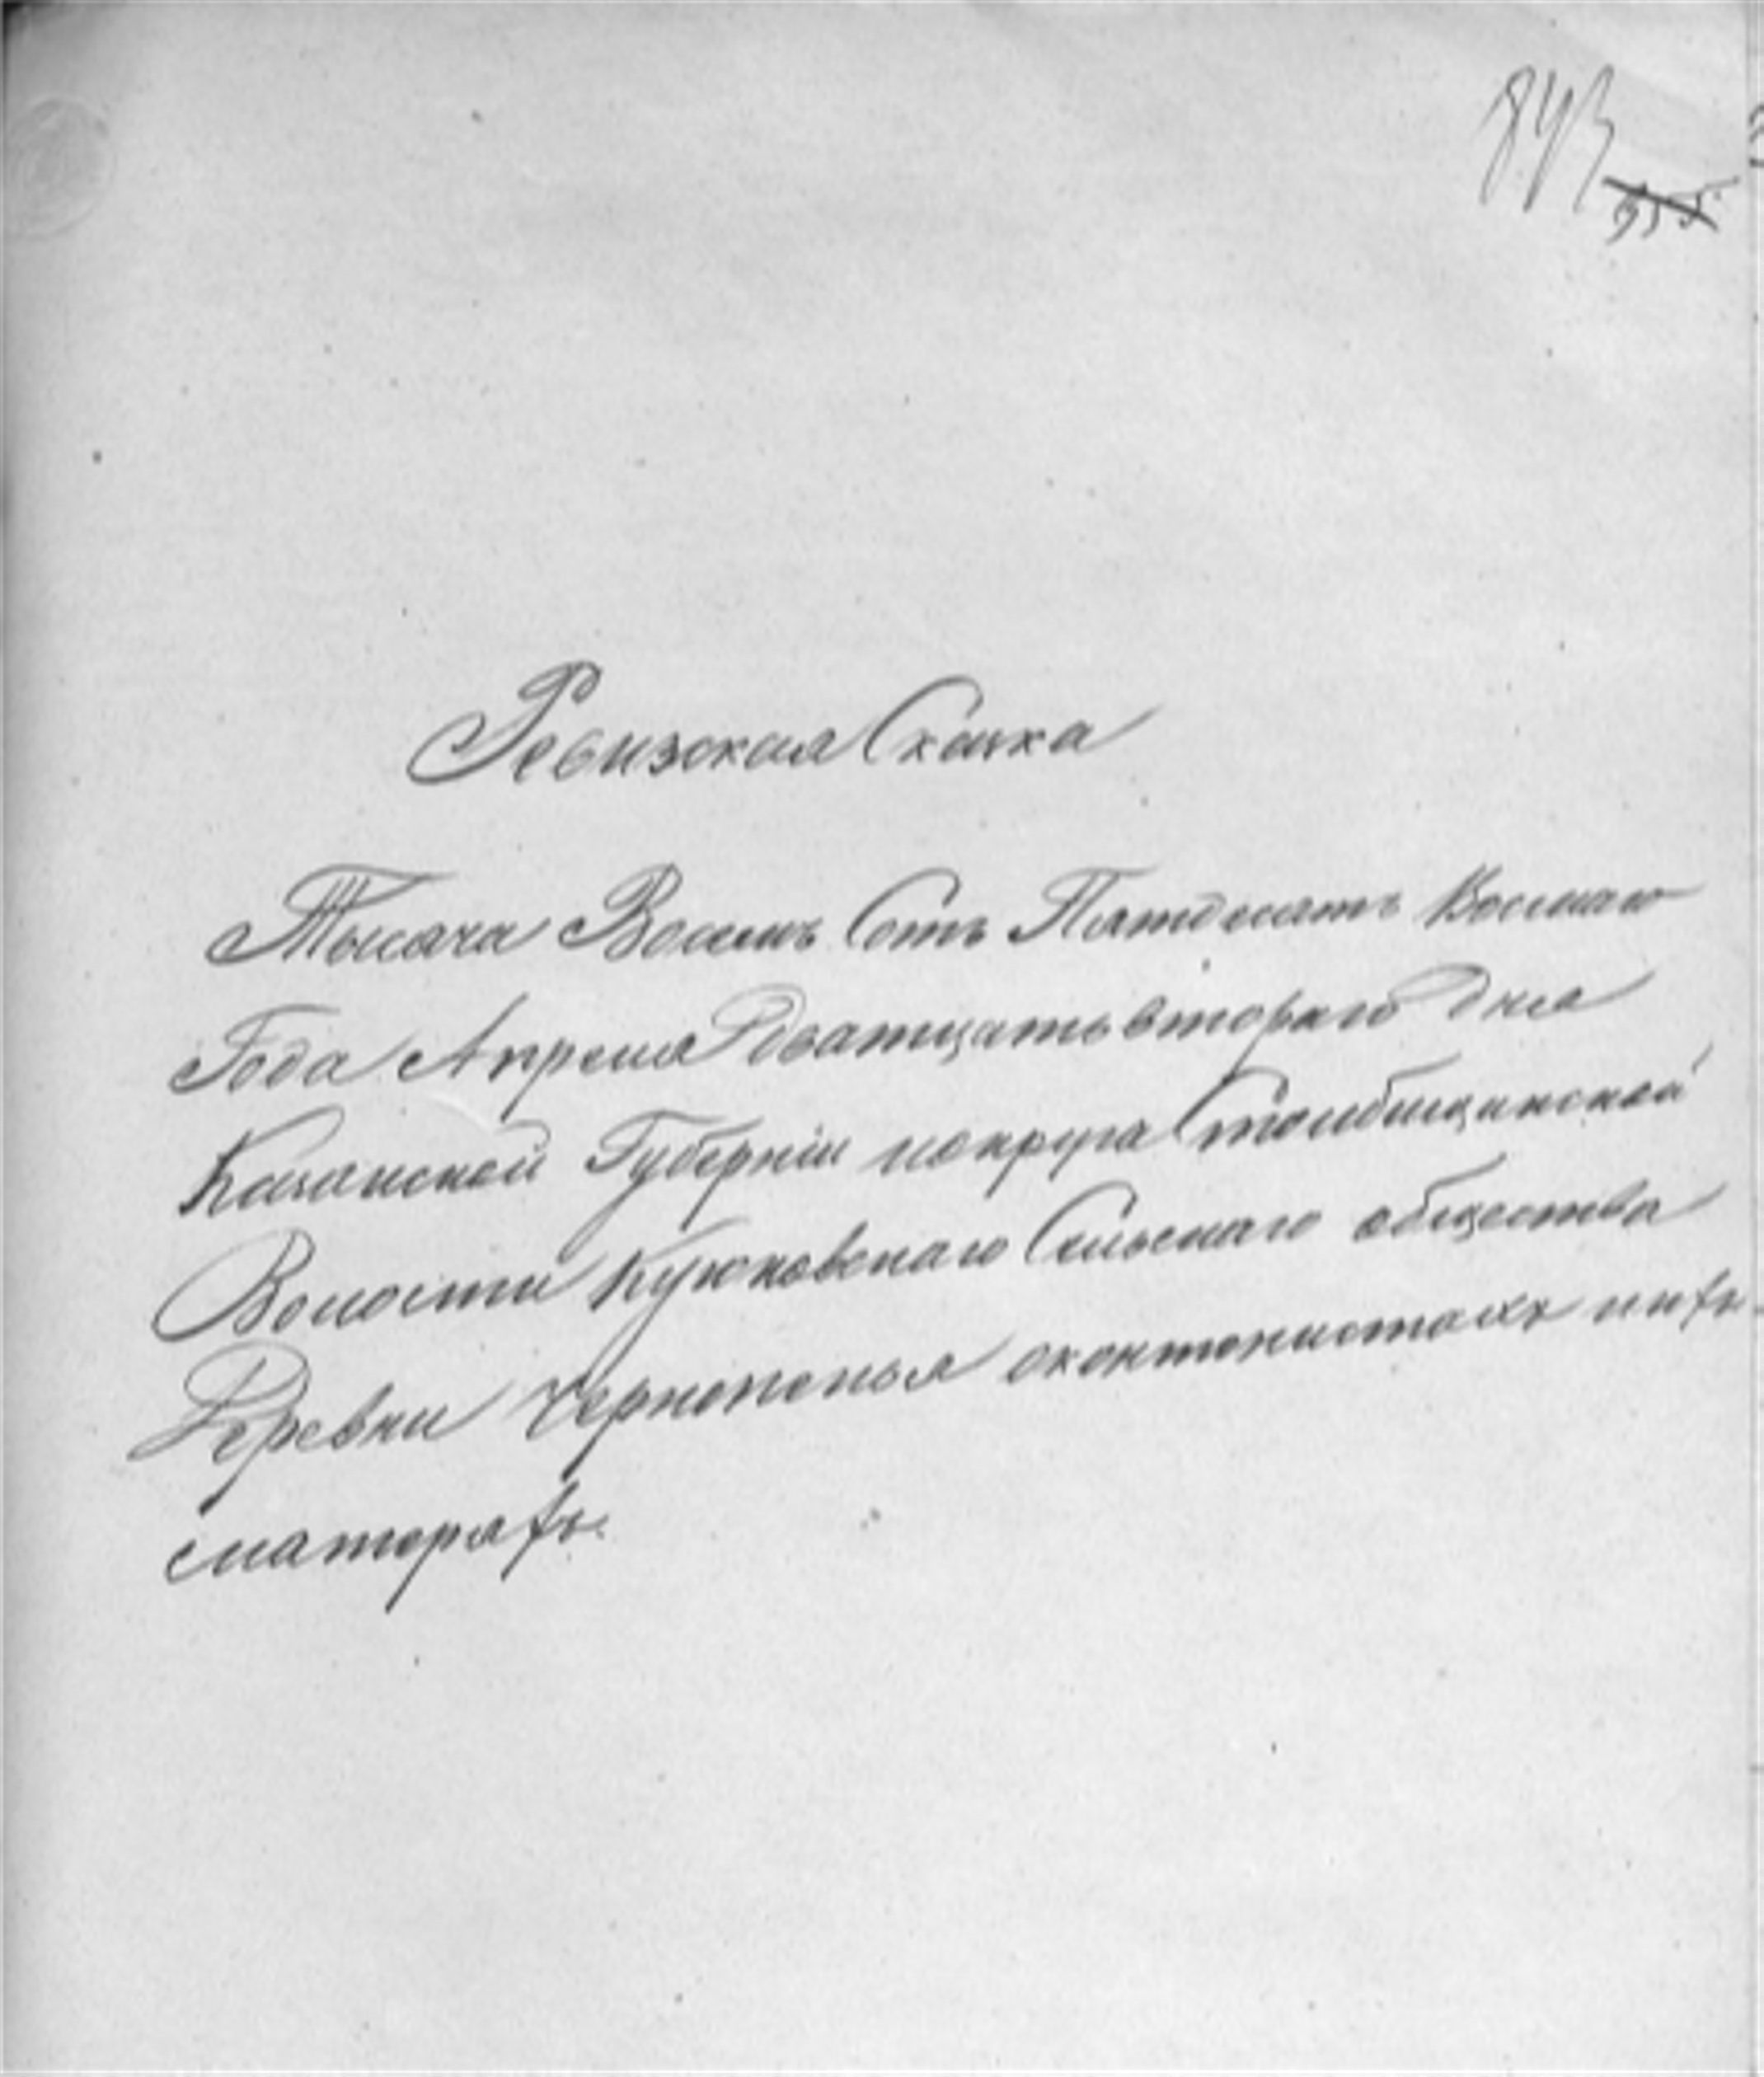 843
955
Ревизская Скаска
Тысяча Восемь Сотъ Пятдесятъ Восмаго
Года Апреля дватцать втораго дня
Казанской Губерніи иокруга Столбищинской
Волости Куюковскаго Сельскаго общества
Деревни Чернопенья окантонистахъ иихъ
сматеряхъ.